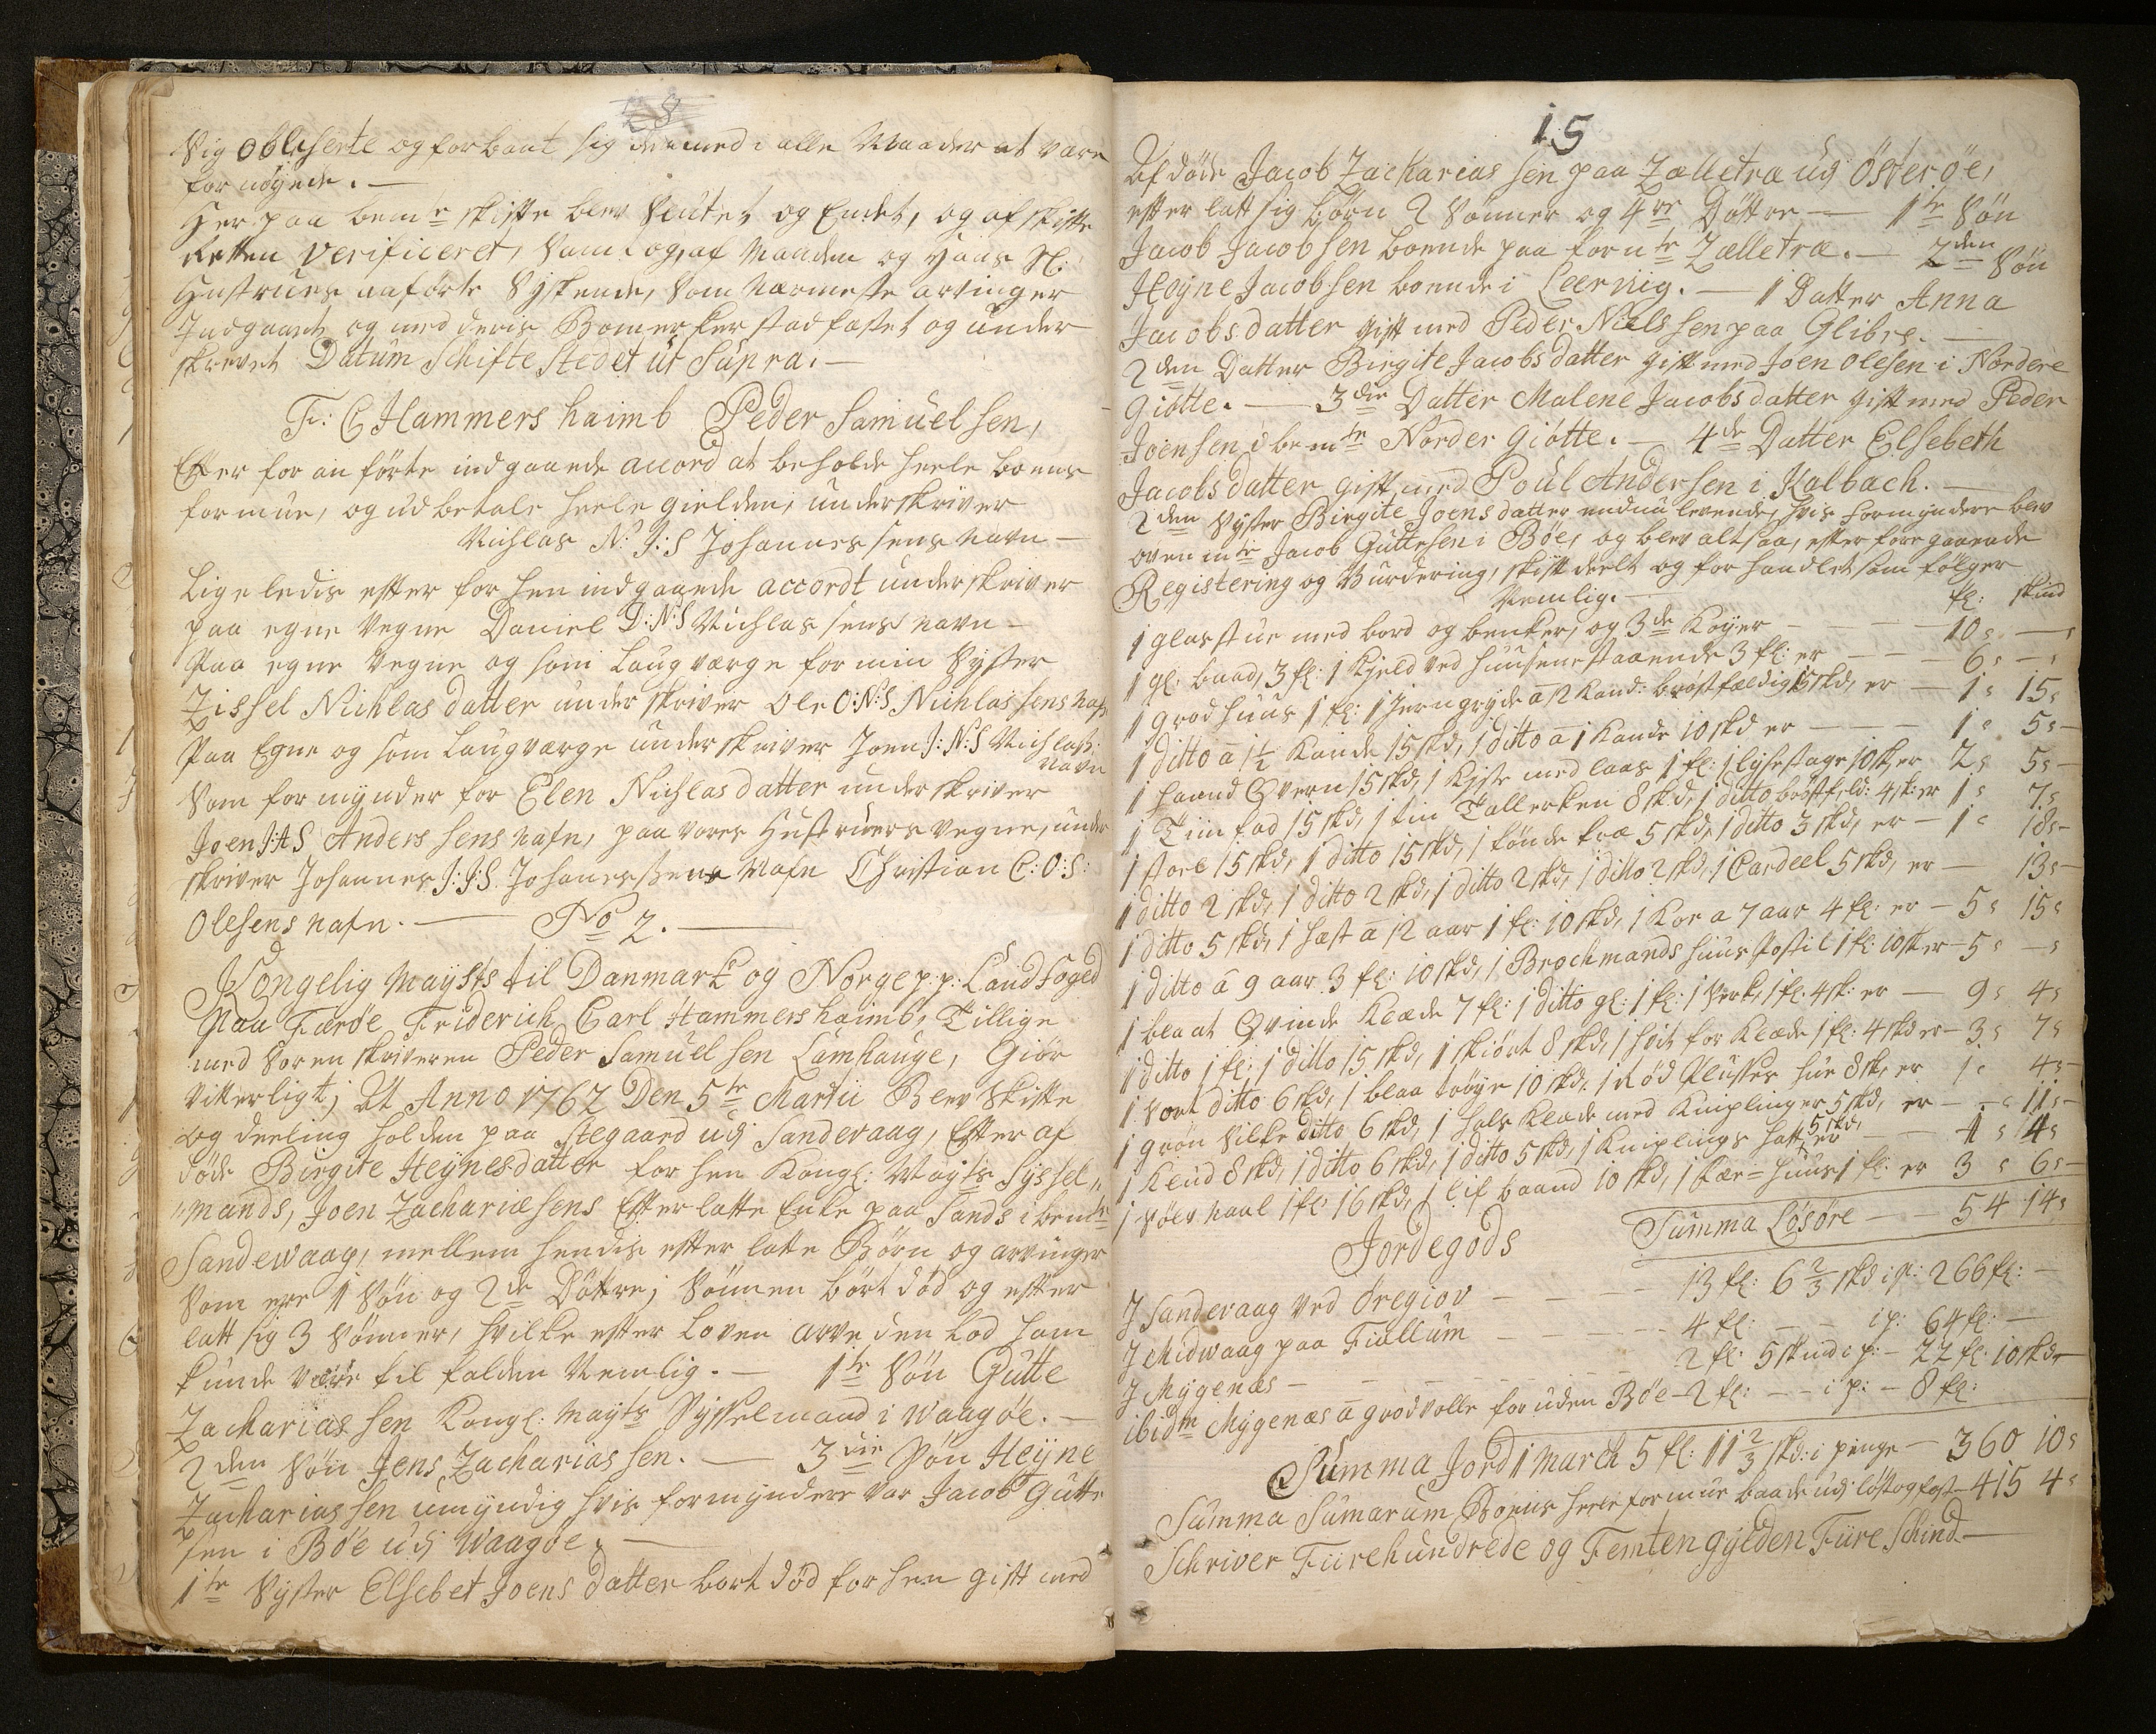 28
Sig obliserte og forbant sig dermed i alle Maader at være
fornöyede. —
Her paa bemte skifte blev Slutet og Endet, og af skifte
Retten Verificeret, Samt og af Manden og Hans Sl:
Hustrues anförte Syskende, Som Nærmeste arvinger
Indgaaet og med deris Bomerker stadfæstet og under
skrevet Datum Schifte Stedet üt Süpra. —
Fr: C Hammershaimb Peder Samüelsen,
Efter for an förte indgaaende accord at beholde heele boens
formue, og udbetale heele gielden, underskriver
Nichlas N: J: S Johannessens navn —
Ligeledis efter forhen indgaaede accordt underskriver
paa egne Vegne Daniel D:N:S Nichlassens navn —
Paa egne Vegne og som Laugværge for min Syster
Zissel Nichlasdatter underskriver Ole O:N:S Nichlassens nafn
Paa Egne og som Laugværge underskriver Joen J:N:S Nichlass:
navn
Som formynder for Elen Nichlasdatter underskriver
Joen J:A S Anderssens nafn, paa vores Hustruers Vegne, under
skriver Johannes J:J:S. Johanessens Nafn Christian C:O:S:
Olesens nafn. — No 2. —
Kongelig Maysts til Danmark og Norge p:p: Landfoged
Paa Færöe Friderich Carl Hammershaimb, Tillige
med Sorenskriveren Peder Samüelsen Lamhauge, Giör
Vitterligt; At Anno 1762 Den 5te Martii Blev Skifte
og deeling holden paa Stegaard udj Sandevaag, Efter af
döde Birgite Heynesdatter forhen Kongl: Mayts Syssel„
„mands, Joen Zachariæsens Efterlatte Enke paa Sands i bemte
Sandewaag, mellem hendis efterlatte Börn og arvinger
Som ere 1 Sön og 2de Döttre; Sönnen bört död og efter
latt sig 3 Sönner, hvilke efter Loven arve den Lod ham
kunde være tilfalden Nemlig. — 1te Sön Gutte
Zachariassen Kongl: Mayts Sysselmand i Waagöe. —
2den Sön Jens Zachariassen. — 3die Sön Heyne
Zachariassen umyndig hvis formyndere var Jacob Gutte
sen i Böe udj Waagöe, —
1te Syster Elsebet Joensdatter bort död forhen gift med
15
Afdöde Jacob Zachariassen paa Zælletræ udj Österöe,
efterlatt sig börn 2 Sönner og 4re Döttre — 1te Sön
Jacob Jacobsen boende paa fornte Zælletræ. — 2den Sön
Heyne Jacobsen boende i Leervig. — 1 Datter Anna
Jacobsdatter gift med Peder Nielssen paa Glibre. —
2den Datter Birgite Jacobsdatter gift med Joen Olesen i Nordere
Giötte. — 3die Datter Malene Jacobsdatter gift med Peder
Joensen i bemte Norder Giötte. — 4de Datter Elsebeth
Jacobsdatter gift med Poül Andersen i Kalbach. —
2den Syster Birgite Joensdatter endnu levende, hvis formyndere blev
ovenmte Jacob Guttesen i Böe, og blev altsaa, efter foregaaende
Registering og Vurdering, skift deelt og forhandlet som fölger
Nemlig. — fl: skind
1 glasstue med bord og benker, og 3de Köyer — 10 s — s
1 gl: baad, 3 fl: 1 Kjeld ved huusene staaende 3 fl: er — 6 s — s
1 grodhuus 1 fl: 1 Jerngryde a 12 Kand: bröstfældig 15 skd, er — 1 s 15 s
1 ditto a 1½ Kande 15 skd, 1 ditto a 1 Kande 10 skd er — 1 s 5 s —
1 haand Qvern 15 skd, 1 Kiste med laas 1 fl: 1 lysestage 10 sk er 2 s 5 s —
1 Tiinfad 15 skd, 1 tin Tallerken 8 skd, 1 ditto bröstfeld: 4 sk: er 1 s 7 s
1 stoel 15 skd, 1 ditto 15 skd, 1 tönde træ 5 skd, 1 ditto 3 skd, er — 1 s 18 s —
1 ditto 2 skd, 1 ditto 2 skd, 1 ditto 2 skd, 1 ditto 2 skd, 1 Cardeel 5 skd, er — 13 s —
1 ditto 5 skd, 1 hæst a 12 aar 1 fl: 10 skd, 1 Koe a 7 aar 4 fl: er — 5 s 15 s
1 ditto a 9 aar 3 fl: 10 skd, 1 Brochmands Huus Postil 1 fl: 10 sk er — 5 s — s
1 blaat Qvinde Klæde 7 fl: 1 ditto gl: 1 fl: 1 Serk, 1 fl: 4 sk: er — 9 s 4 s
1 ditto 1 fl: 1 ditto 15 skd, 1 skiört 8 skd, 1 hvit for Klæde 1 fl: 4 skd er — 3 s 7 s
1 Sort ditto 6 skd, 1 blaa tröye 10 skd, 1 Röd Plusses hue 8 sk, er 1 s 4 s —
1 grön Silke ditto 6 skd, 1 hals Klæde med Kniplinger 5 skd, er — — s 11 s —
1 Klud 8 skd, 1 ditto 6 skd, 1 ditto 5 skd, 1 Kniplings hatt 5 skd, er — 1 s 4 s
1 Sölv naal 1 fl: 16 skd, 1 lif baand 10 skd, 1 Kær=huus 1 fl: er 3 s 6 s —
Summa Lösöre — 54 14 s
Jordegods
J Sandevaag ved Öregiov — 13 fl: 6 2/3 skd ip: 266 fl: —
J Midwaag paa Fiallum — 4 fl: — ip: 64 fl: —
J Mygenæs — 2 fl: 5 skind ip: — 22 fl: 10 skd —
ibidm Mygenæs a grodvolle foruden Böe — 2 fl: — ip: — 8 fl:
Summa Jord 1 March 5 fl: 11 2/3 skd: i penge — 360 10 s
Summa Sumarum Boens heele formue baade udj löst og fast — 415 4 s
Schriver Fiirehundrede og Femten gylden Fiire Skind —